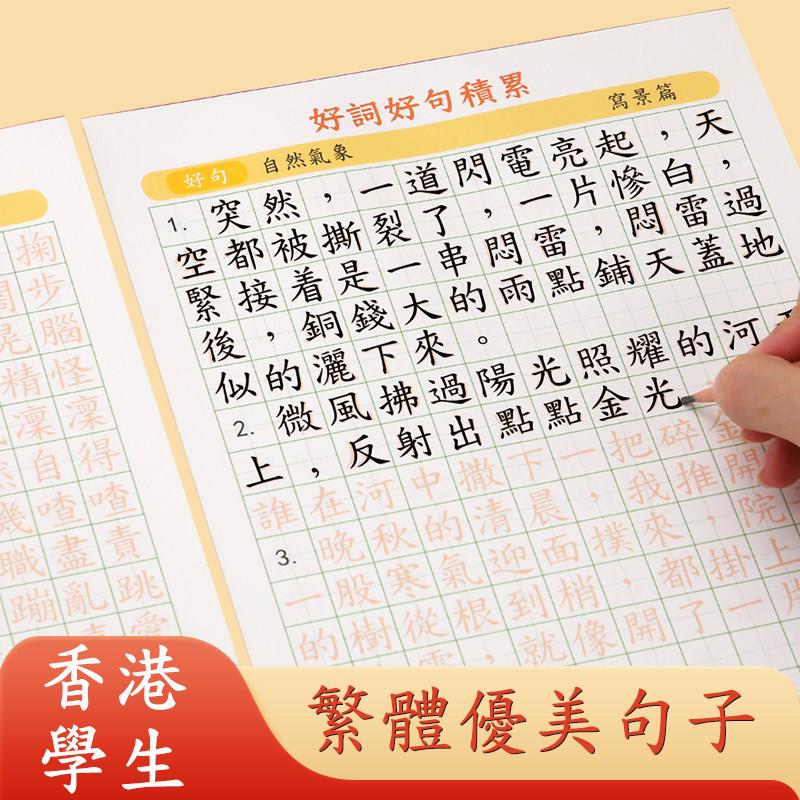 好詞好句積累
好句 自然氣象 寫景篇
1. 突然,一道閃電亮起,天
空都被撕裂了,一片慘白,
緊接着是一串悶雷,悶雷過
後,銅錢大的雨點鋪天蓋地
似的灑下來。
2. 微風拂過陽光照耀的河
上,反射出點點金光
誰在河中撒下一把碎金
3. 晚秋的清晨,我推開
一股寒氣迎面撲來,院
的樹從根到梢,都掛上
,就像開了一片
掬
闊步
晃腦
精怪
凜凜
然自得
嘰喳喳
職盡責
蹦亂跳
愛
香港
學生
繁體優美句子